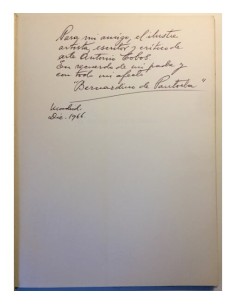 Para mi amigo, el ilustre
artista, escritor y crítico de
arte Antonio Cobos
En recuerdo de mi padre y
con todo mi afecto
"Bernardino de Pantorba"
Madrid.
Dic. 1966